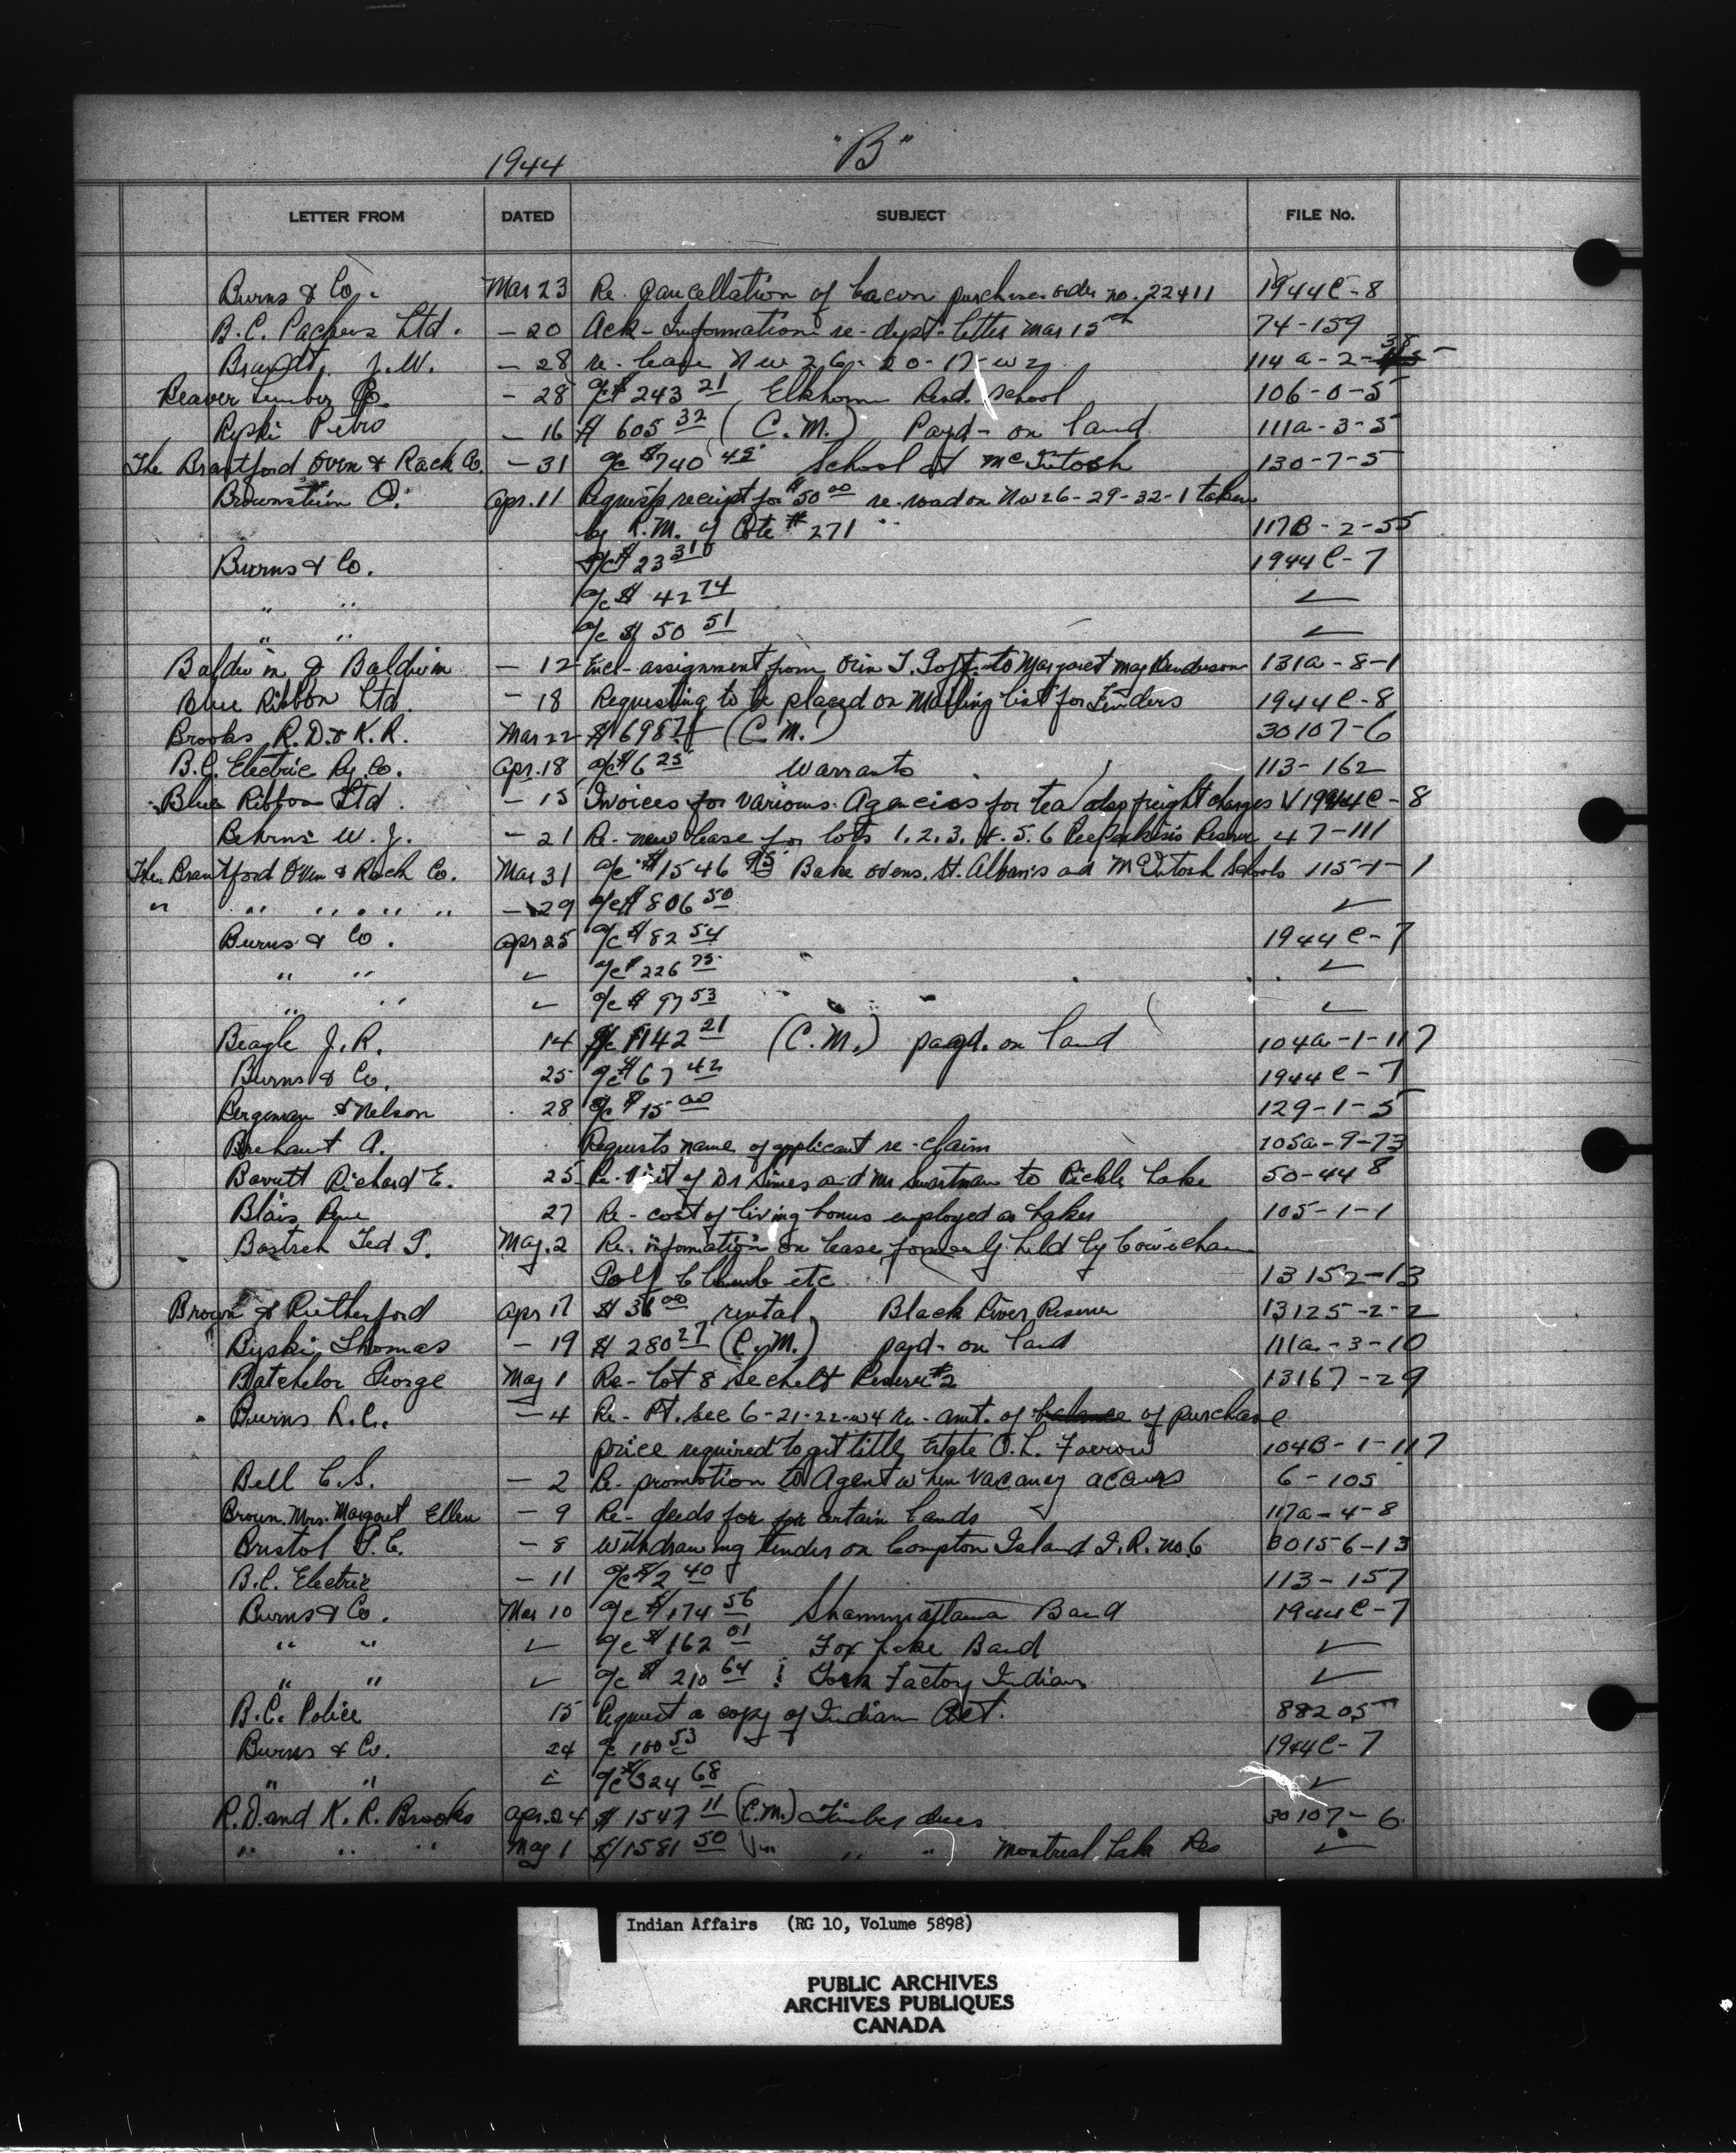 1944 "B"
LETTER FROM DATED SUBJECT FILE No.
Burns & Co. Mar 23 Re. Cancellation of bacon purchase order no. 22411 1944C-8
B.C. Packers Ltd. - 20 Ack- information re- dept. letter Mar 15th 74-159
Brandt, J.W. - 28 re- lease NW 26-20-17-W2 114a-2-38
Beaver Lumber Co. - 28 a/c $ 243 21 Elkhorn Resd. School 106-0-5
Ryski Petro - 16 $ 605 32 (C.M.) Payd- on land 111a-3-5
The Brantford Oven & Rack Co. - 31 a/c $740 45 School at McIntosh 130-7-5
Brownstein O. Apr. 11 Requests receipt for $50 00 re-road on NW26-29-32-1 taken
by R.M. of Cote #271 117B-2-55
Burns & Co. a/c $ 23 31 1944C-7
" " a/c $ 42 74 ✓
" " a/c $ 50 51 ✓
Baldwin & Baldwin - 12 Encl- assignment from Orin T. Goft to Margaret May Henderson 131a-8-1
Blue Ribbon Ltd. - 18 Requesting to be placed on Mailing list for Tenders 1944C-8
Brooks, R.D. & K.R. Mar 22 $ (C.M.) 30107-6
B.C. Electric Ry. Co. Apr. 18 a/c $6 25 Warrants 113-162
Blue Ribbon Ltd. - 15 Invoices for various Agencies for tea also freight charges 1944C-8
Behrns W.J. - 21 Re- new lease for lots 1.2.3.4.5.6 Peepeekisis Reserve 47-111
The Brantford Oven & Rack Co. Mar 31 a/c $1546 95 Bake ovens, St. Alban's and McIntosh Schools 115-1-1
" " " " " " - 29 a/c $ 806 50 ✓
Burns & Co. Apr 25 a/c $ 82 54 1944C-7
" " ✓ a/c $ 226 75 ✓
" " ✓ a/c $ 97 53 ✓
Beagle J.R. 14 $1142 21 (C.M.) payd. on land 104a-1-117
Burns & Co. 25 a/c $ 67 42 1944C-7
Bergeman & Nelson 28 a/c $ 15 00 129-1-5
Brehaut A. Requests name of applicant re-claim 105a-9-73
Barrett Richard E. 25 Re- Visit of Dr Simes and Mr Swartman to Pickle Lake 50-448
Blais, Rene 27 Re- cost of living bonus employed as baker 105-1-1
Bastreh Ted T. May. 2 Re. information on lease formerly held by Cowichan
Golf Club etc 13152-13
Brown & Rutherford Apr 17 $ 36 00 rental, Black River Reserve 13125-2-2
Ryski Thomas - 19 $ 280 27 (C.M.) payd- on land 111a-3-10
Batchelor George May 1 Re- Lot 8 Sechelt Reserve #2 13167-29
Burns R.C. - 4 Re- Pt. Sec 6-21-22-W4 re- amt. of balance of purchase
price required to get title Estate O.L. Farrow 104B-1-117
Bell C.S. - 2 Re- promotion to Agent when vacancy occurs 6-105
Brown. Mrs. Margaret Ellen - 9 Re- deeds for for certain lands 117a-4-8
Bristol P.C. - 8 Withdrawing tender on Compton Island I.R. no. 6 30156-13
B.C. Electric - 11 a/c $2 40 113-157
Burns & Co. Mar 10 a/c $174 56 Shammattawa Band 1944C-7
" " ✓ a/c $ 162 01 Fox Lake Band ✓
" " ✓ a/c $ 210 64 York Factory Indians ✓
B.C. Police 15 Request a copy of Indian Act. 88205
Burns & Co. 24 100 53 1944C-7
" " a/c $324 68 ✓
R.D. and K.R. Brooks Apr. 24 $ 1547 11 (C.M.) Timber dues 30107-6
" " " May 1 $ 1581 50 " " " Montreal Lake Res ✓
Indian Affairs (RG 10, Volume 5898)
PUBLIC ARCHIVES
ARCHIVES PUBLIQUES
CANADA